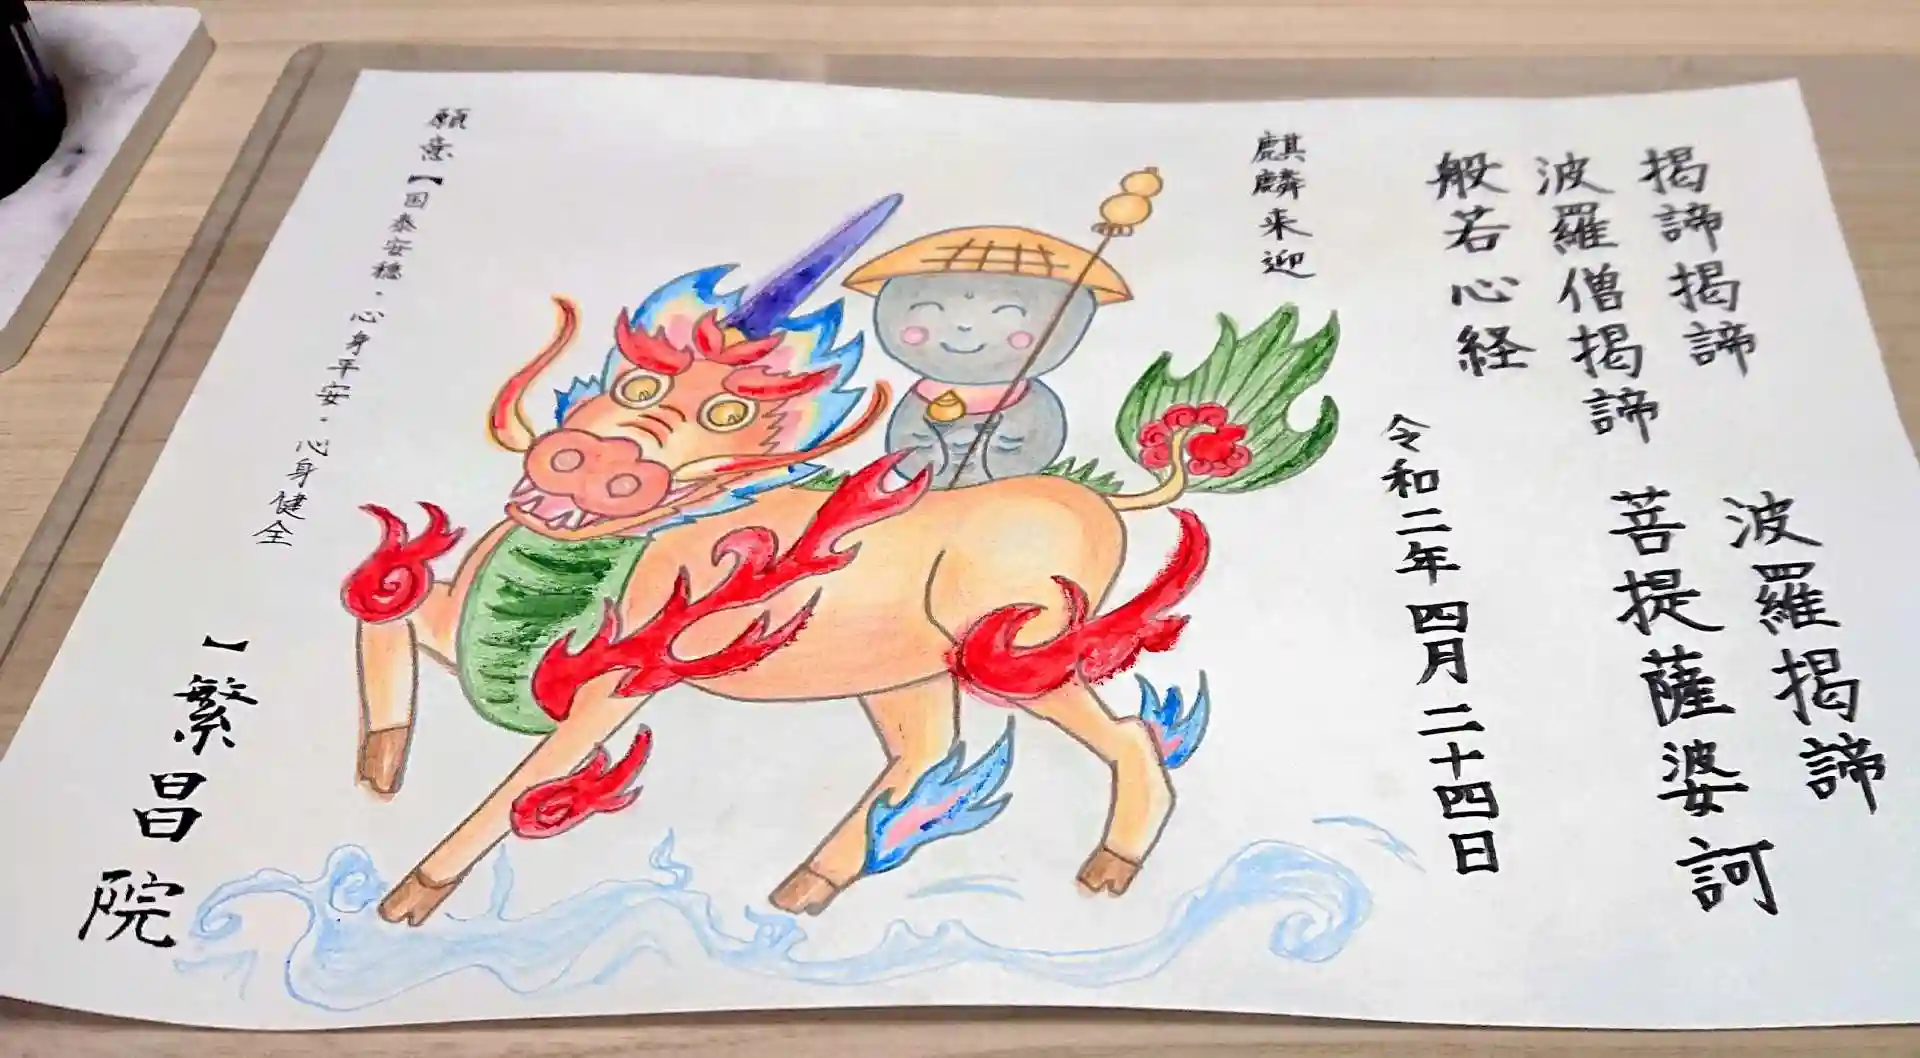 揭諦揭諦 波羅揭諦
波羅僧揭諦 菩提薩婆訶
般若心経
令和二年四月二十四日
麒麟来迎
願意【国泰安穏・心身平安・心身健全】
繁昌院